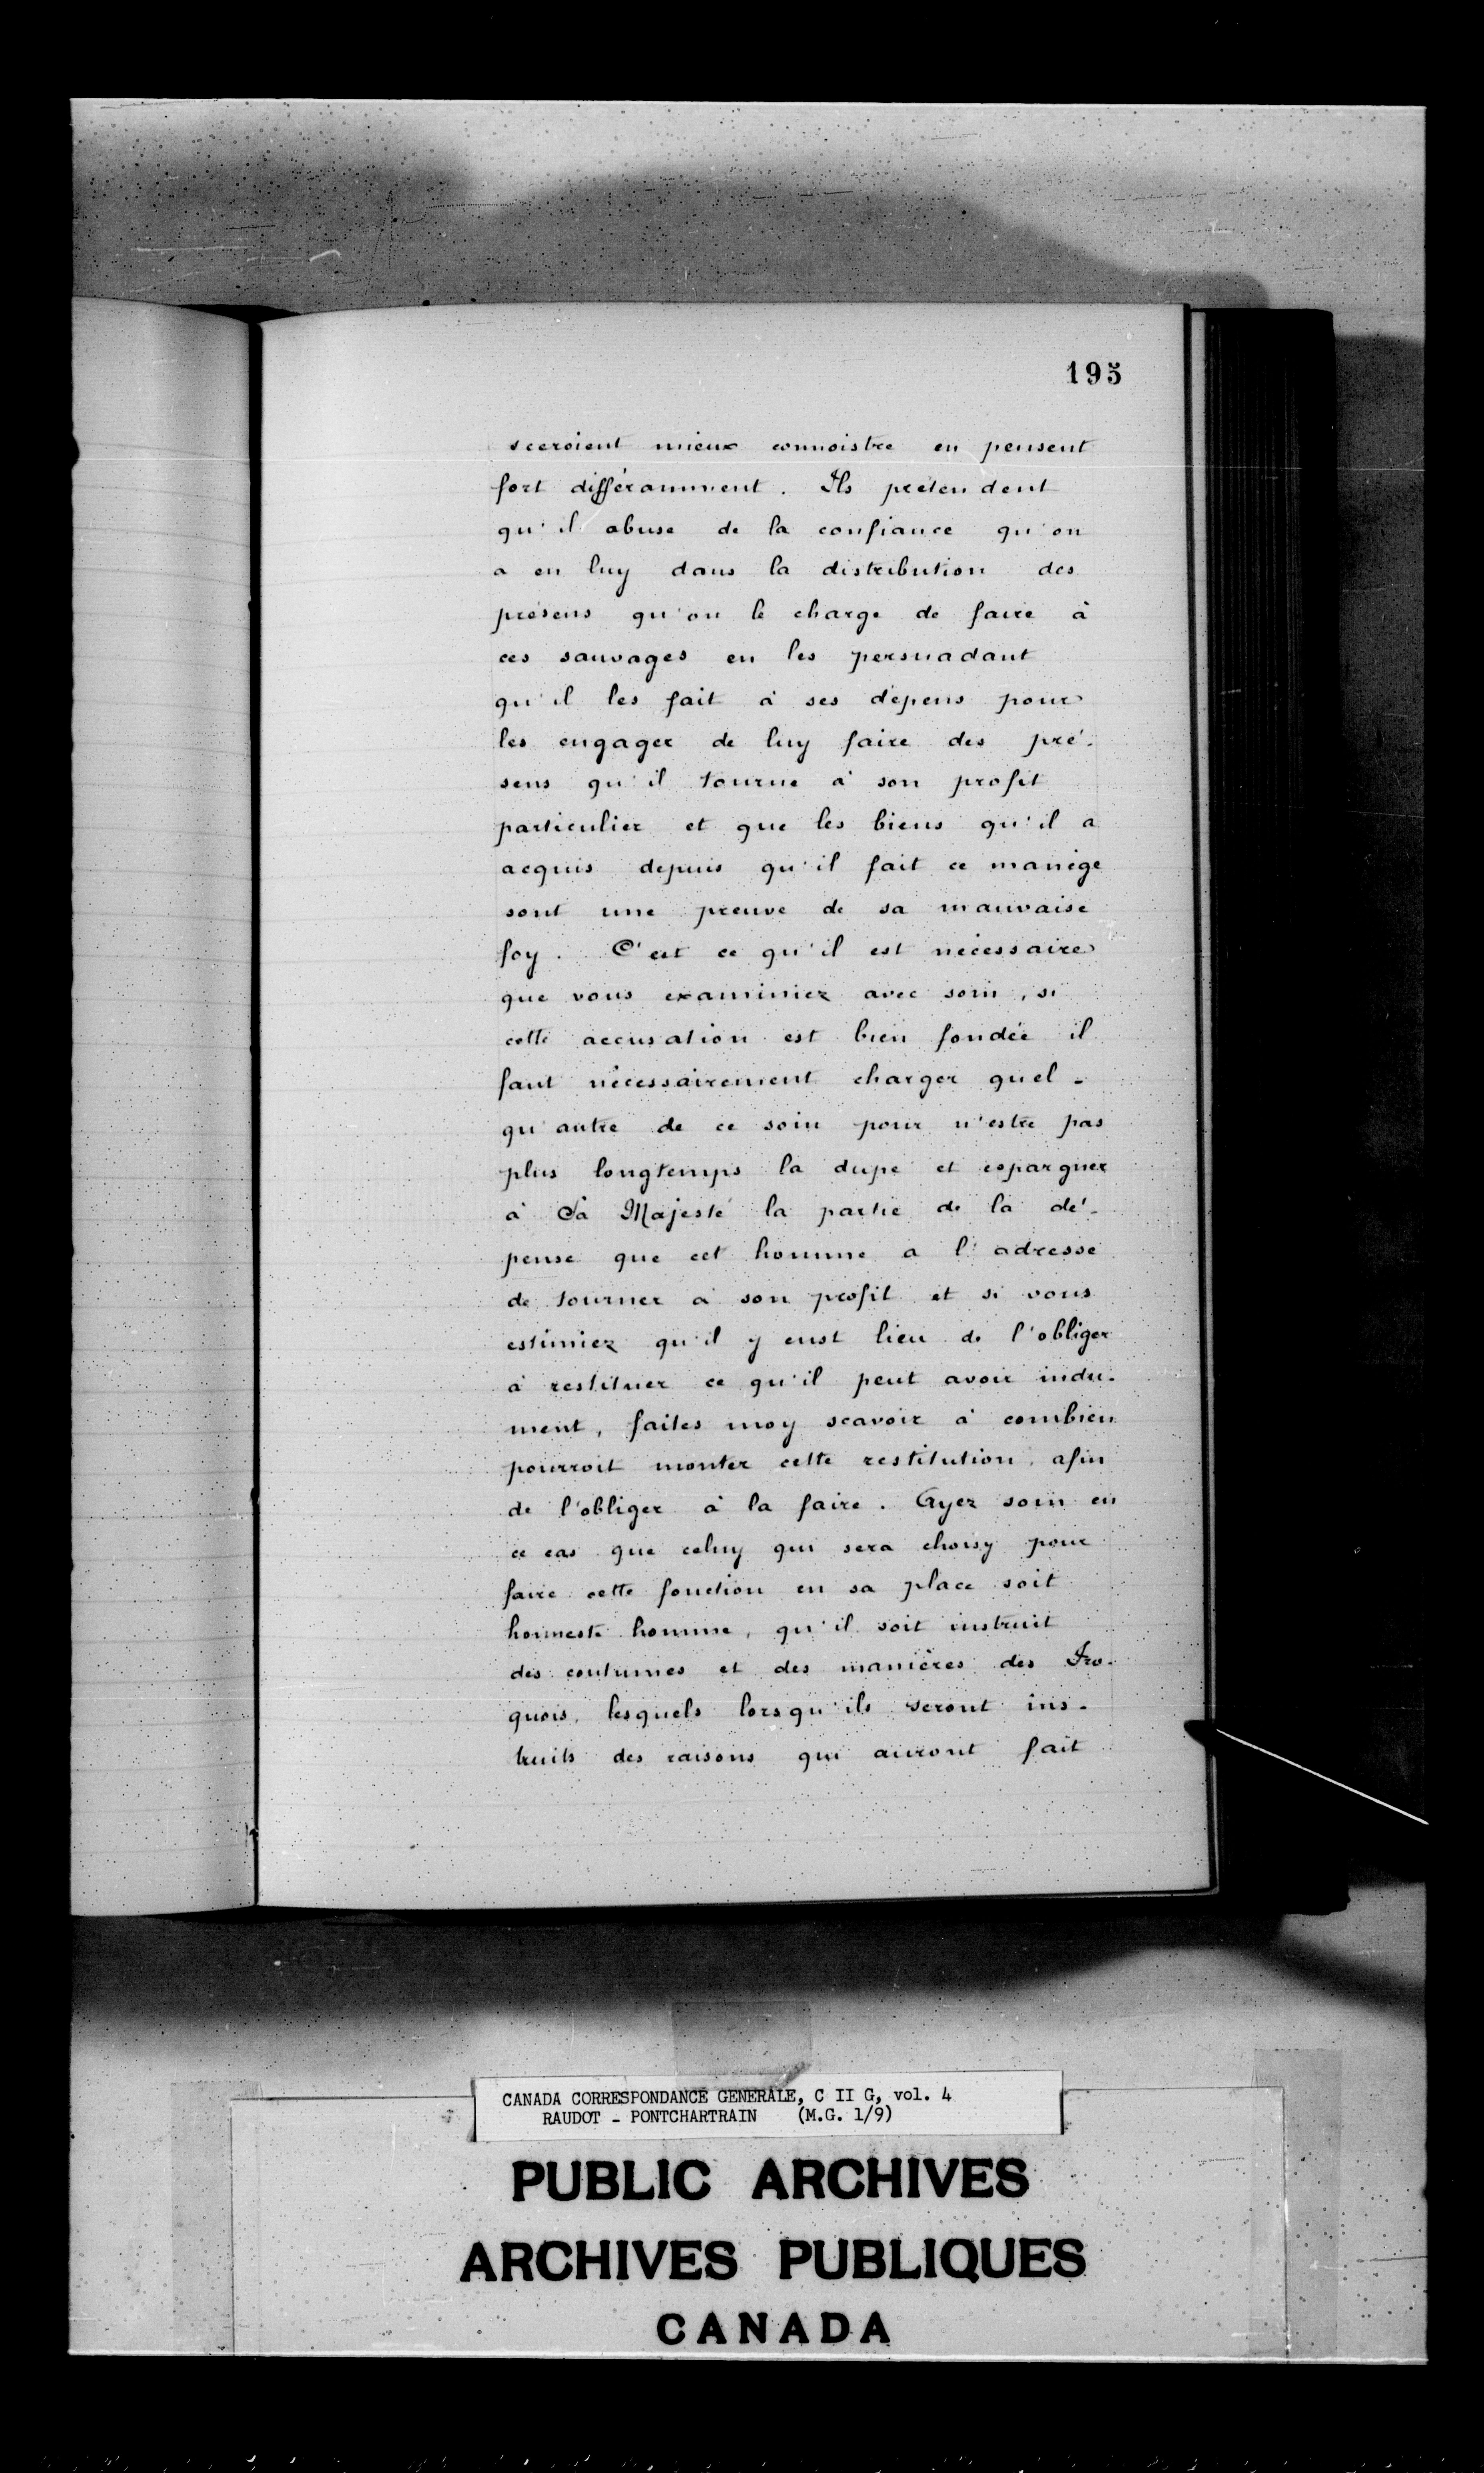 195
sceroient mieux connoistre en pensent
fort différamment. Ils prétendent
qu'il abuse de la confiance qu'on
a en luy dans la distribution des
présens qu'on le charge de faire à
ces sauvages en les persuadant
qu'il les fait à ses dépens pour
les engager de luy faire des pré-
sens qu'il tourne à son profit
particulier et que les biens qu'il a
acquis depuis qu'il fait ce manège
sont une preuve de sa mauvaise
foy. C'est ce qu'il est nécessaire
que vous examiniez avec soin, si
cette accusation est bien fondée il
faut nécessairement charger quel-
qu'autre de ce soin pour n'estre pas
plus longtemps la dupe et espargner
à Sa Majesté la partie de la dé-
pense que cet homme a l'adresse
de tourner à son profit et si vous
estimiez qu'il y eust lieu de l'obliger
à restituer ce qu'il peut avoir indu-
ment, faites moy scavoir à combien
pourroit monter cette restitution, afin
de l'obliger à la faire. Ayez soin en
ce cas que celuy qui sera choisy pour
faire cette fonction en sa place soit
honneste homme, qu'il soit instruit
des coutumes et des manières des Iro-
quois, lesquels lorsqu'ils seront ins-
truits des raisons qui auront fait
CANADA CORRESPONDANCE GENERALE, C II G, vol. 4
RAUDOT - PONTCHARTRAIN (M.G. 1/9)
PUBLIC ARCHIVES
ARCHIVES PUBLIQUES
CANADA